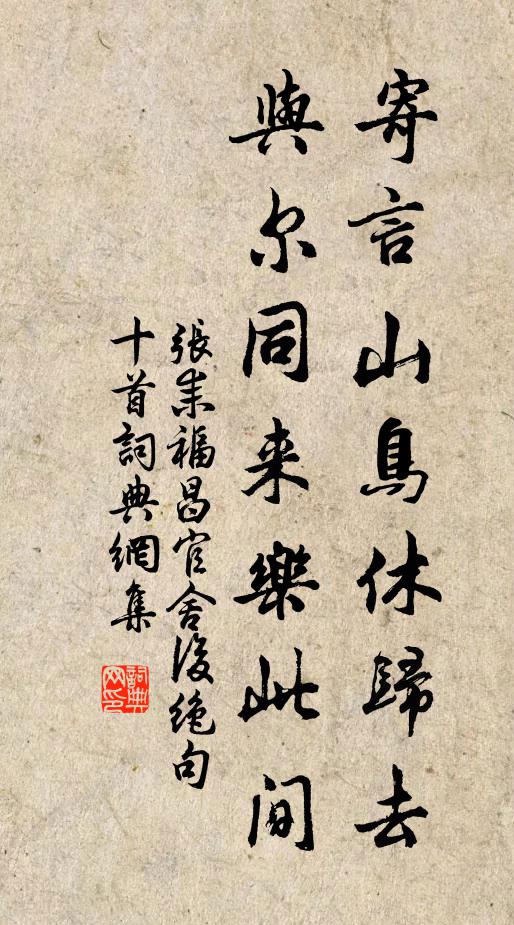 寄言山鳥休歸去
與尔同来樂此間
張耒福昌官舍後絶句
十首詞典網集
詞典
网印